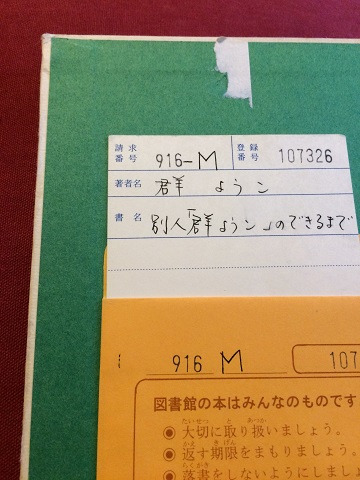 請求番号 916-M 登録番号 107326
著者名 群 ようこ
書名 別人「群ようこ」のできるまで
916 M 107
図書館の本はみんなのものです
たいせつ と あつか
◉大切に取り扱いましょう。
かえ きげん
◉返す期限をまもりましょう。
らくがき
◉落書をしないようにしまし